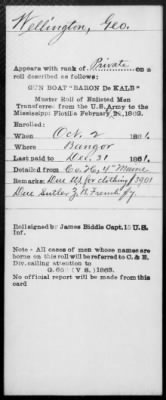 Wellington, Geo.
Appears with rank of Private on a
roll described as follows:
GUN BOAT "BARON De KALB"
Muster Roll of Enlisted Men
Transferred from the U.S. Army to the
Mississippi Flotilla February 1862.
Enrolled:
When Oct. 2 1861.
Where Bangor
Last paid to Dec. 31 1861.
Detailed from Co. H, 4" Maine
Remarks: Due U.S. for clothing 3901
Due Sutler Z. N. French
Rollsigned by James Biddle Capt. 15 U.S.
Inf.
Note - All cases of men whose names are
borne on this roll will be referred to C. & E.
Div. calling attention to
G. 65 (V S) 1863.
No official report will be made from this
card